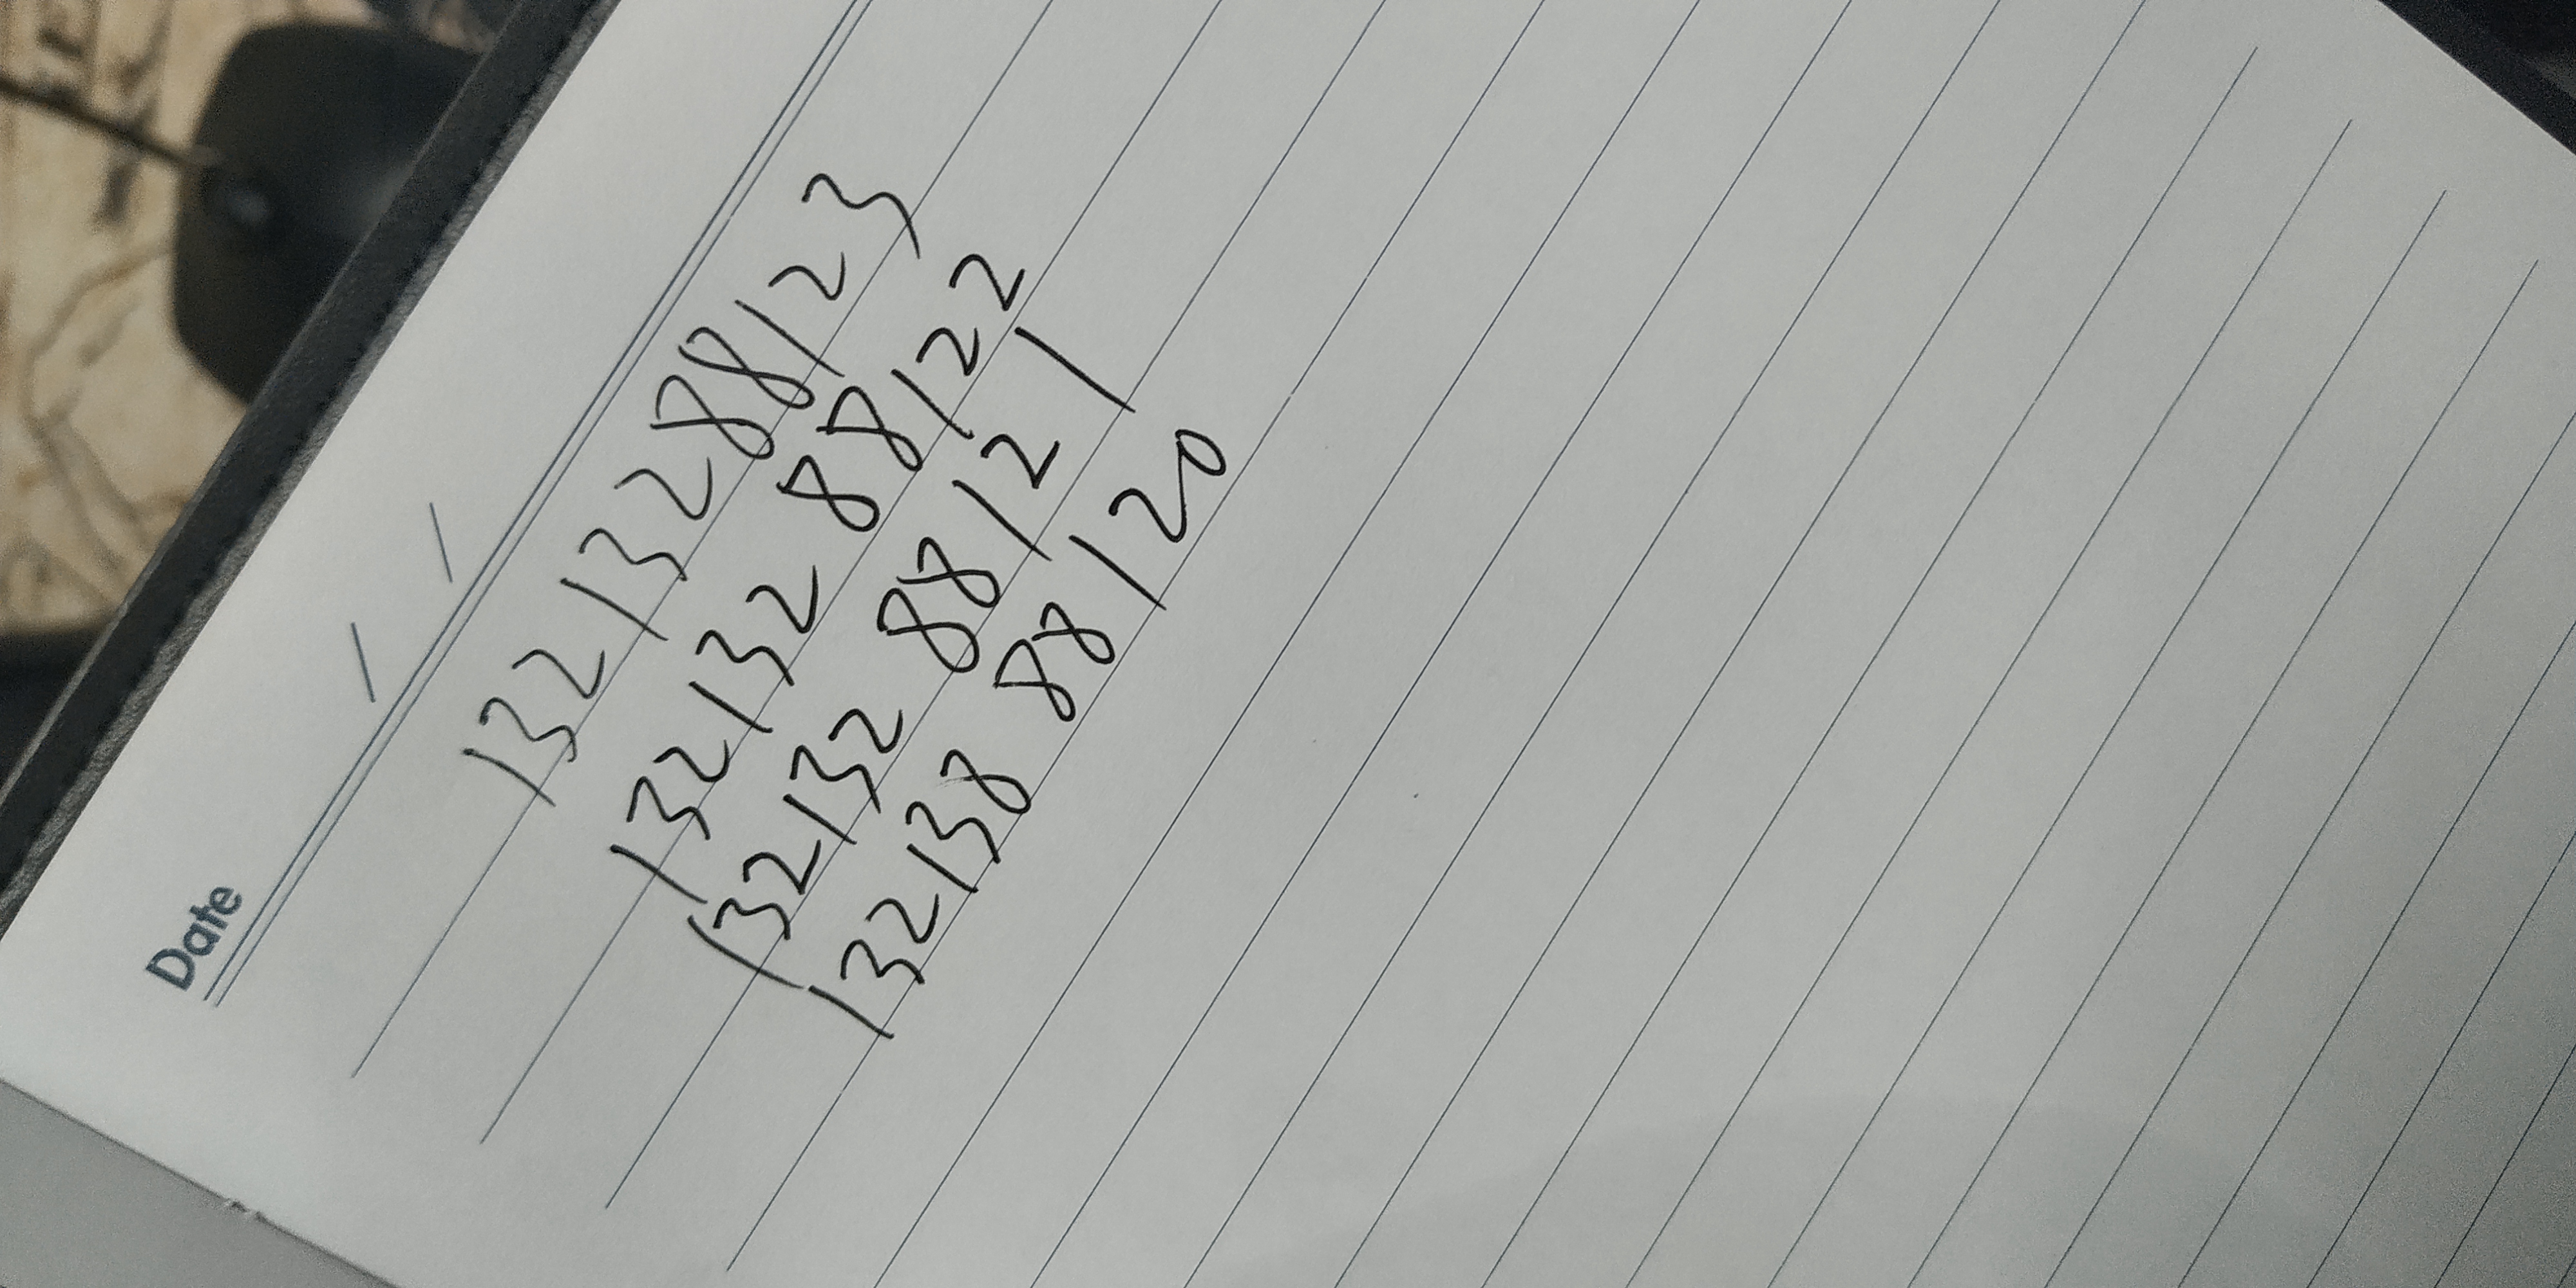 Date / /
13213288123
132132 88122
132132 88121
132138 88120